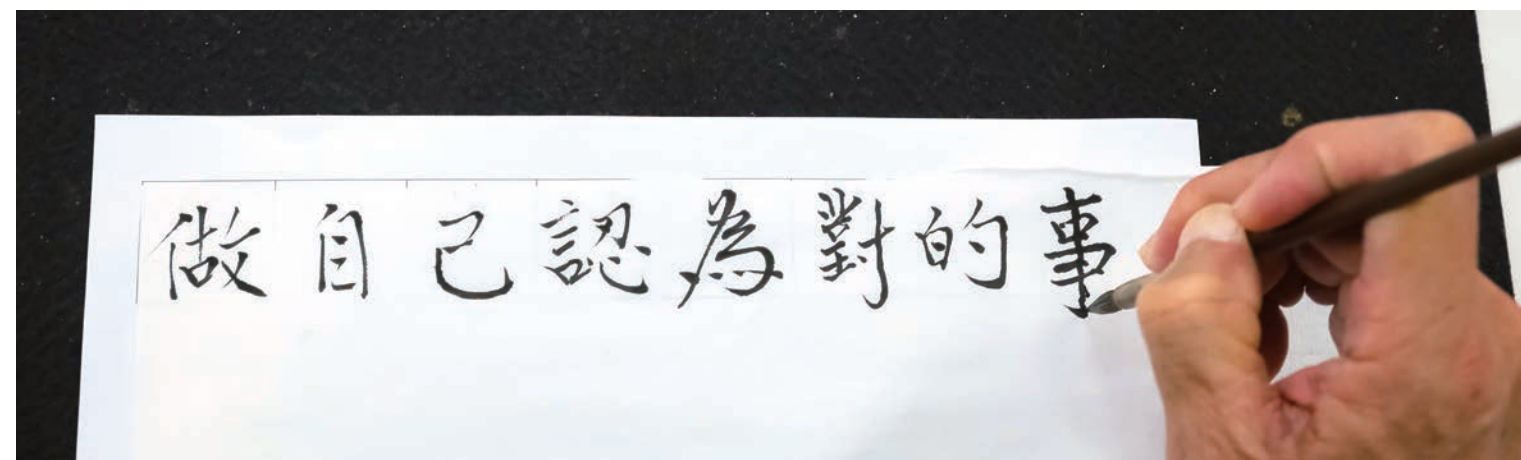 做自己認為對的事